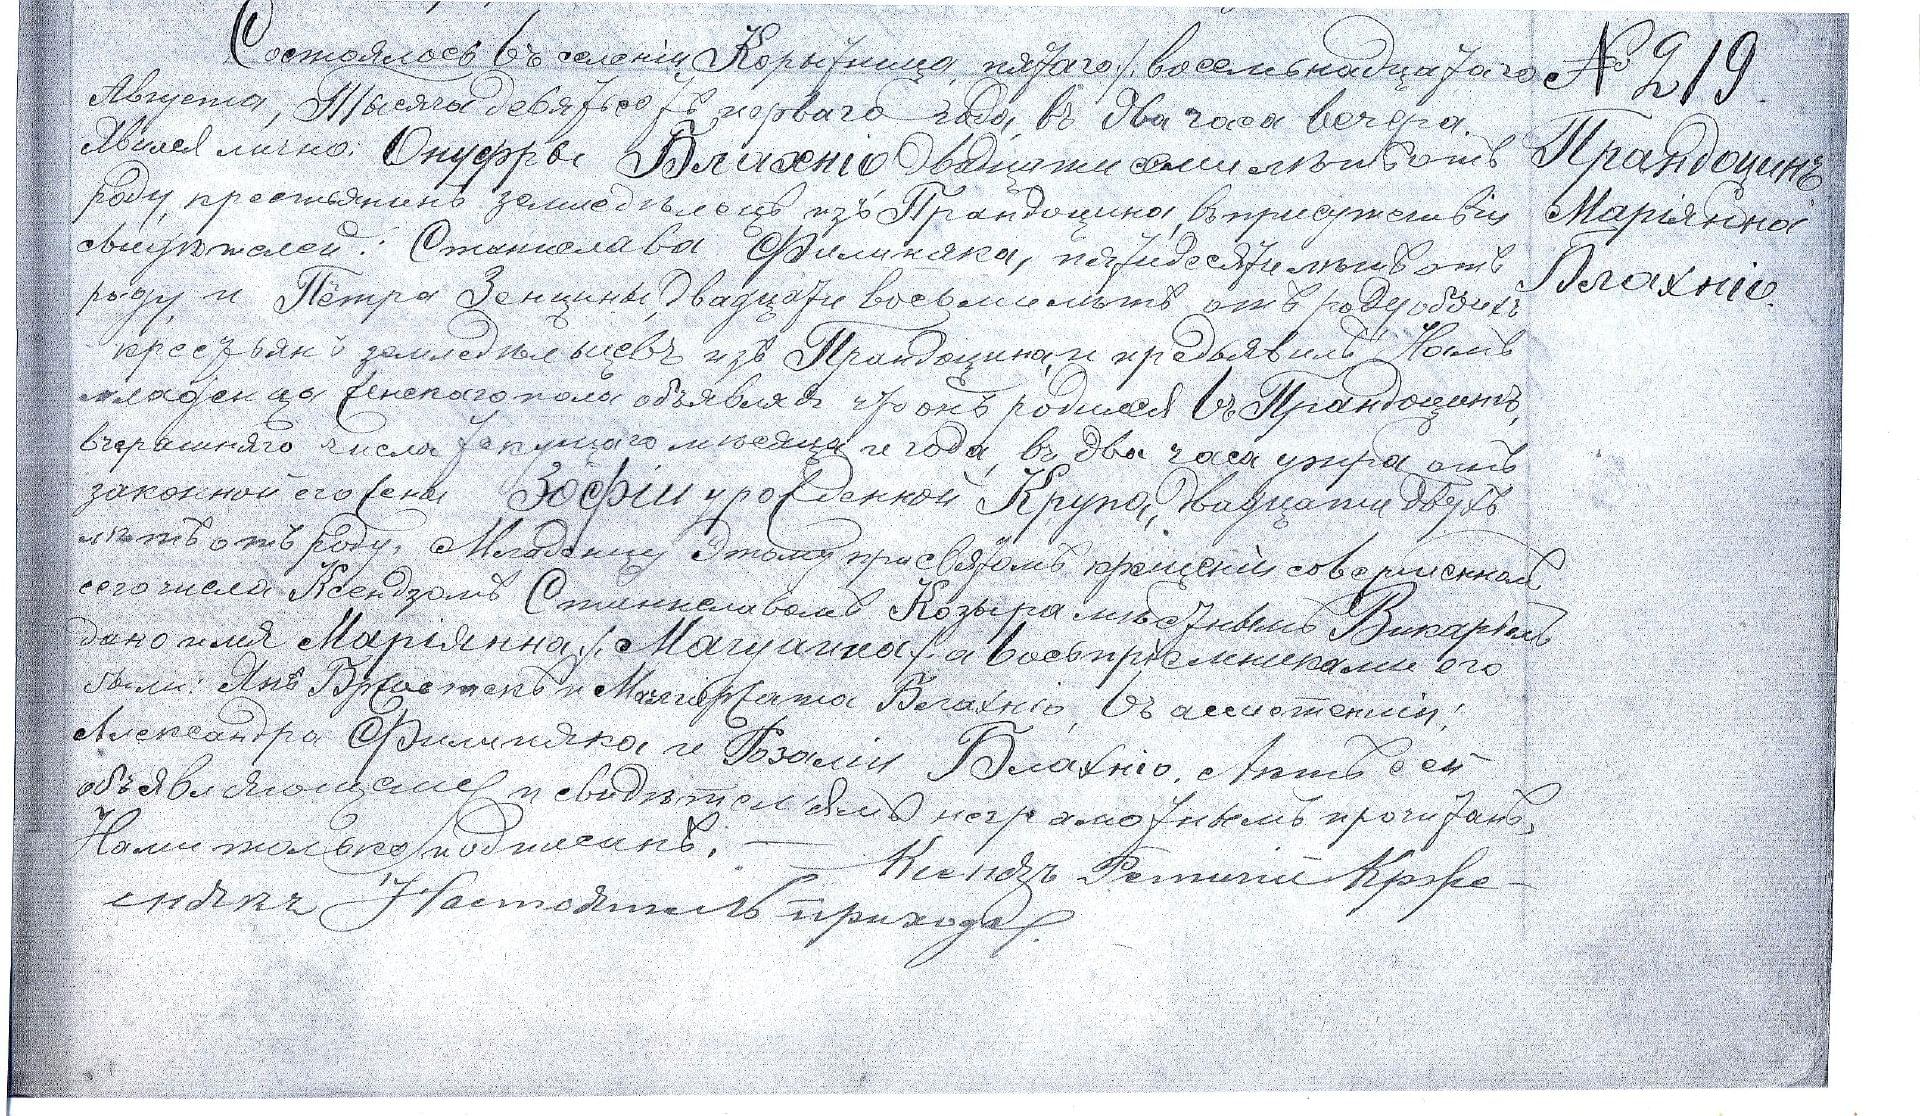 Состоялось въ селеніи Корытница, пятаго /: восемьнадцатаго
Августа, Тысяча девятьсотъ перваго года, въ два часа вечера.
Явился лично: Онуфры Блахніо двадцати семи лѣтъ отъ
роду, крестьянинъ земледѣлецъ изъ Прандоцина, въ присутствіи
свидѣтелей: Станислава Филипяка, пятидесяти лѣтъ отъ
роду, и Петра Зенцины, двадцати восьми лѣтъ отъ роду обоихъ
крестьянъ земледѣльцевъ изъ Прандоцина, и предъявилъ Намъ
младенца женскаго пола объявляя что онъ родился въ Прандоцинѣ,
вчерашняго числа текущаго мѣсяца и года, въ два часа утра отъ
законной его жены Зофіи урожденной Крупа, двадцати двухъ
лѣтъ отъ роду. Младенцу этому при святомъ крещеніи совершенномъ
сего числа Ксендзомъ Станиславомъ Козыра мѣстнымъ Викаріемъ
дано имя Маріянна /: Маryanna :/ а воспріемниками его
были: Янъ Бржостекъ и Малгоржата Блахніо, въ ассистенціи:
Александра Филипяка и Розаліи Блахніо. Актъ сей
объявляющему и свидѣтелямъ неграмотнымъ прочитанъ,
Нами только подписанъ. Ксендзъ Крже-
снякъ Настоятель прихода.
№ 219.
Прандоцинъ
Маріянна
Блахніо.